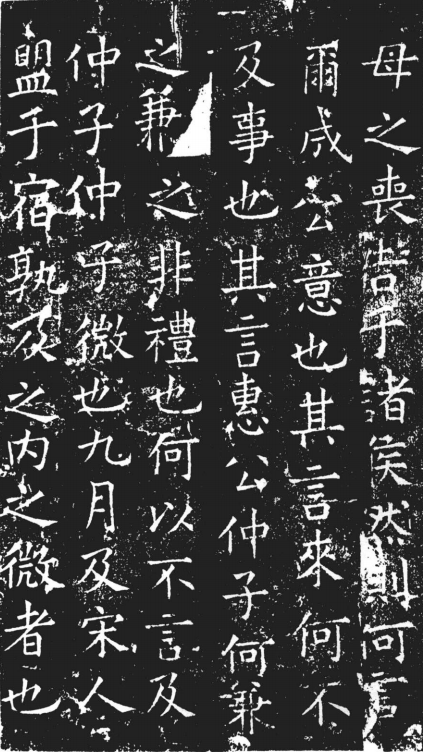 母之喪告于諸侯然則何言
爾成公意也其言來何不
及事也其言惠公仲子何兼
之兼之非禮也何以不言及
仲子仲子微也九月及宋人
盟于宿孰及之內之微者也